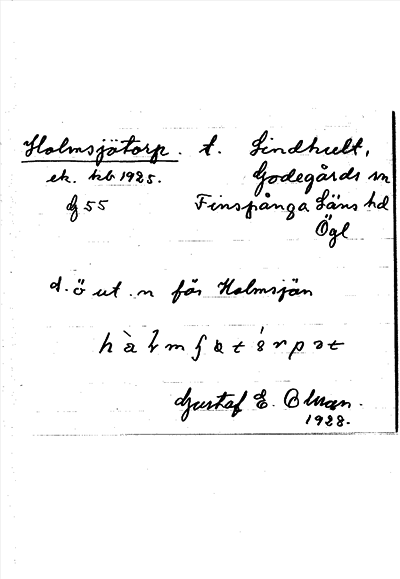 Holmsjötorp. t. Lindhult,
ek. kb 1925. Godegårds sn
dz 55 Finspånga Läns hd
Ögl
d. ö ut. n från Holmsjön
Gustaf E. Olman.
1928.